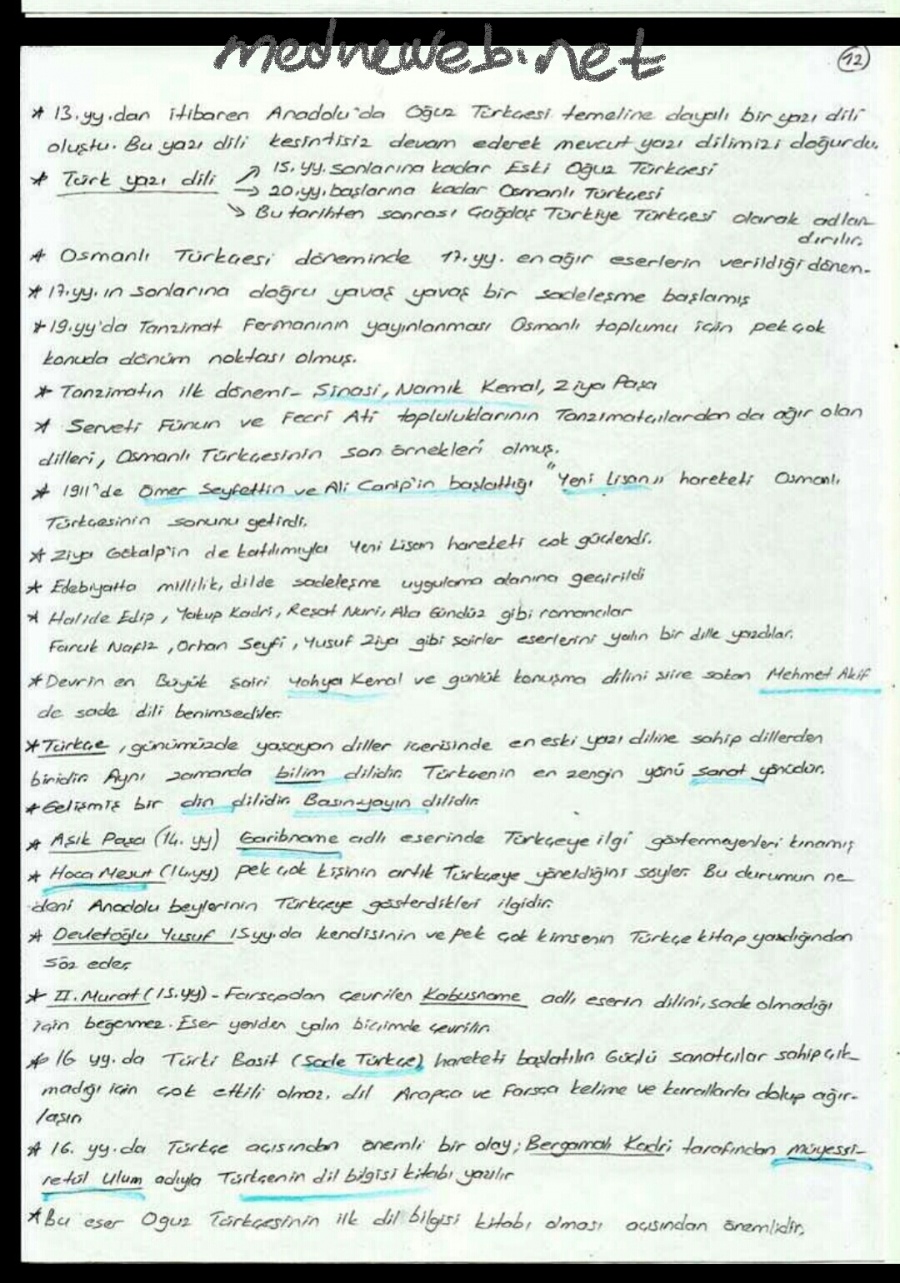 medneweb.net
12
* 13.yy.dan itibaren Anadolu'da Oğuz Türkçesi temeline dayalı bir yazı dili
oluştu. Bu yazı dili kesintisiz devam ederek mevcut yazı dilimizi doğurdu.
* Türk yazı dili → 15.yy.sonlarına kadar Eski Oğuz Türkçesi
→ 20.yy.başlarına kadar Osmanlı Türkçesi
→ Bu tarihten sonrası Çağdaş Türkiye Türkçesi olarak adlan
dırılır.
* Osmanlı Türkçesi döneminde 17.yy. en ağır eserlerin verildiği dönem.
* 17.yy.ın sonlarına doğru yavaş yavaş bir sadeleşme başlamış
* 19.yy'da Tanzimat Fermanının yayınlanması Osmanlı toplumu için pek çok
konuda dönüm noktası olmuş.
* Tanzimatın ilk dönemi- Şinasi, Namık Kemal, Ziya Paşa
* Serveti Fünun ve Fecri Ati topluluklarının Tanzimatçılardan da ağır olan
dilleri, Osmanlı Türkçesinin son örnekleri olmuş.
* 1911'de Ömer Seyfettin ve Ali Canip'in başlattığı "Yeni Lisan" hareketi Osmanlı
Türkçesinin sonunu getirdi.
* Ziya Gökalp'in de katılımıyla Yeni Lisan hareketi çok güçlendi.
* Edebiyatta millilik, dilde sadeleşme uygulama alanına geçirildi
* Halide Edip, Yakup Kadri, Reşat Nuri, Aka Gündüz gibi romancılar
Faruk Nafiz, Orhan Seyfi, Yusuf Ziya gibi şairler eserlerini yalın bir dille yazdılar.
* Devrin en Büyük şairi Yahya Kemal ve günlük konuşma dilini şiire sokan Mehmet Akif
de sade dili benimsediler.
* Türkçe, günümüzde yaşayan diller içerisinde en eski yazı diline sahip dillerden
biridir. Aynı zamanda bilim dilidir. Türkçenin en zengin yönü sanat yönüdür.
* Gelişmiş bir din dilidir. Basın-yayın dilidir.
* Aşık Paşa (14. yy) Garibname adlı eserinde Türkçeye ilgi göstermeyenleri kınamış
* Hoca Mesut (14.yy) pek çok kişinin artık Türkçeye yöneldiğini söyler. Bu durumun ne
deni Anadolu beylerinin Türkçeye gösterdikleri ilgidir.
* Devletoğlu Yusuf 15yy.da kendisinin ve pek çok kimsenin Türkçe kitap yazdığından
söz eder.
* II. Murat (15.yy) - Farsçadan çevrilen Kabusname adlı eserin dilini, sade olmadığı
için beğenmez. Eser yeniden yalın biçimde çevrilir.
* 16 yy. da Türki Basit (Sade Türkçe) hareketi başlatılır. Güçlü sanatçılar sahip çık-
madığı için çok etkili olmaz, dil Arapça ve Farsça kelime ve kurallarla dolup ağır-
laşır.
* 16. yy. da Türkçe açısından önemli bir olay; Bergamalı Kadri tarafından müyessi-
retül Ulum adıyla Türkçenin dil bilgisi kitabı yazılır
* Bu eser Oğuz Türkçesinin ilk dil bilgisi kitabı olması açısından önemlidir.